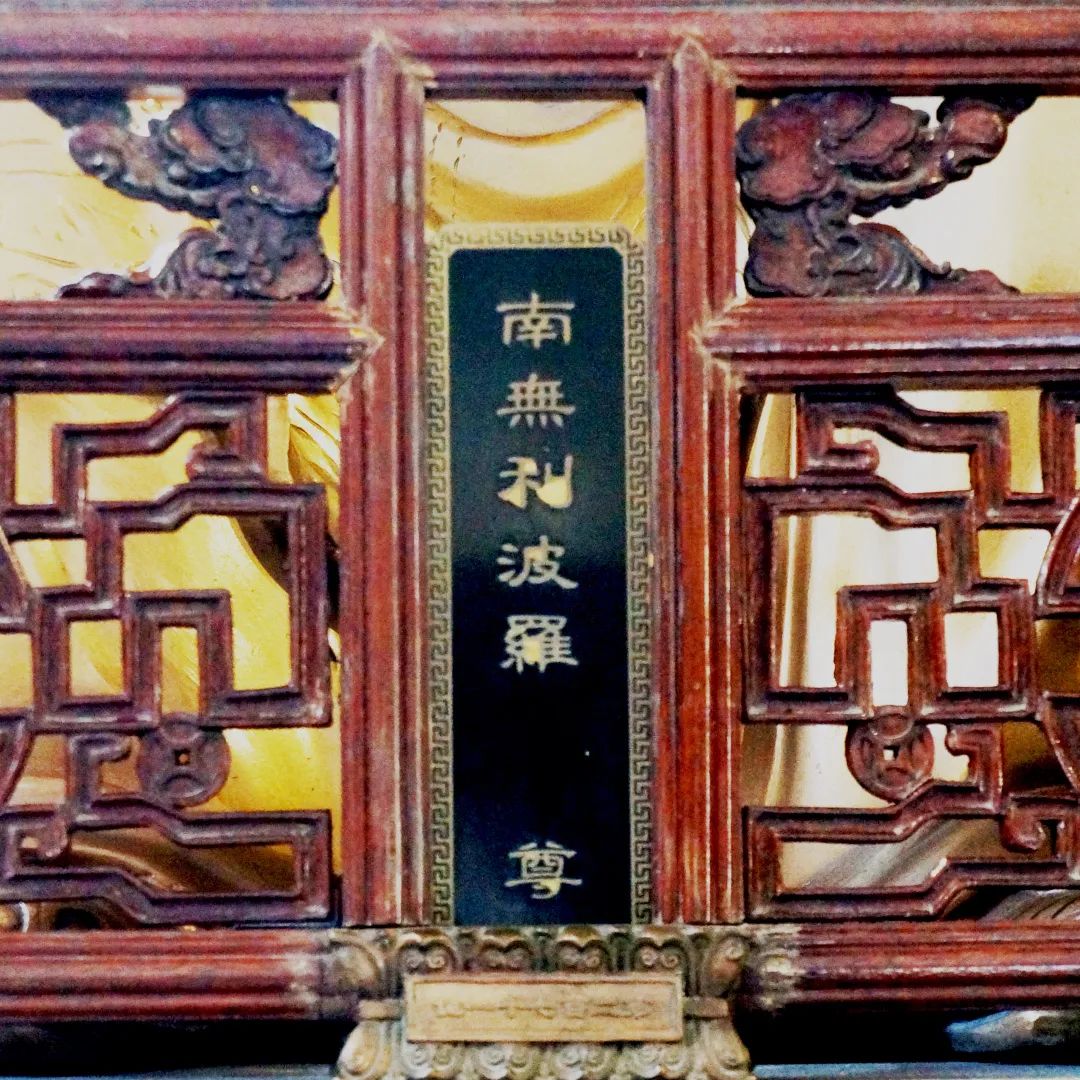 南無利波羅 尊